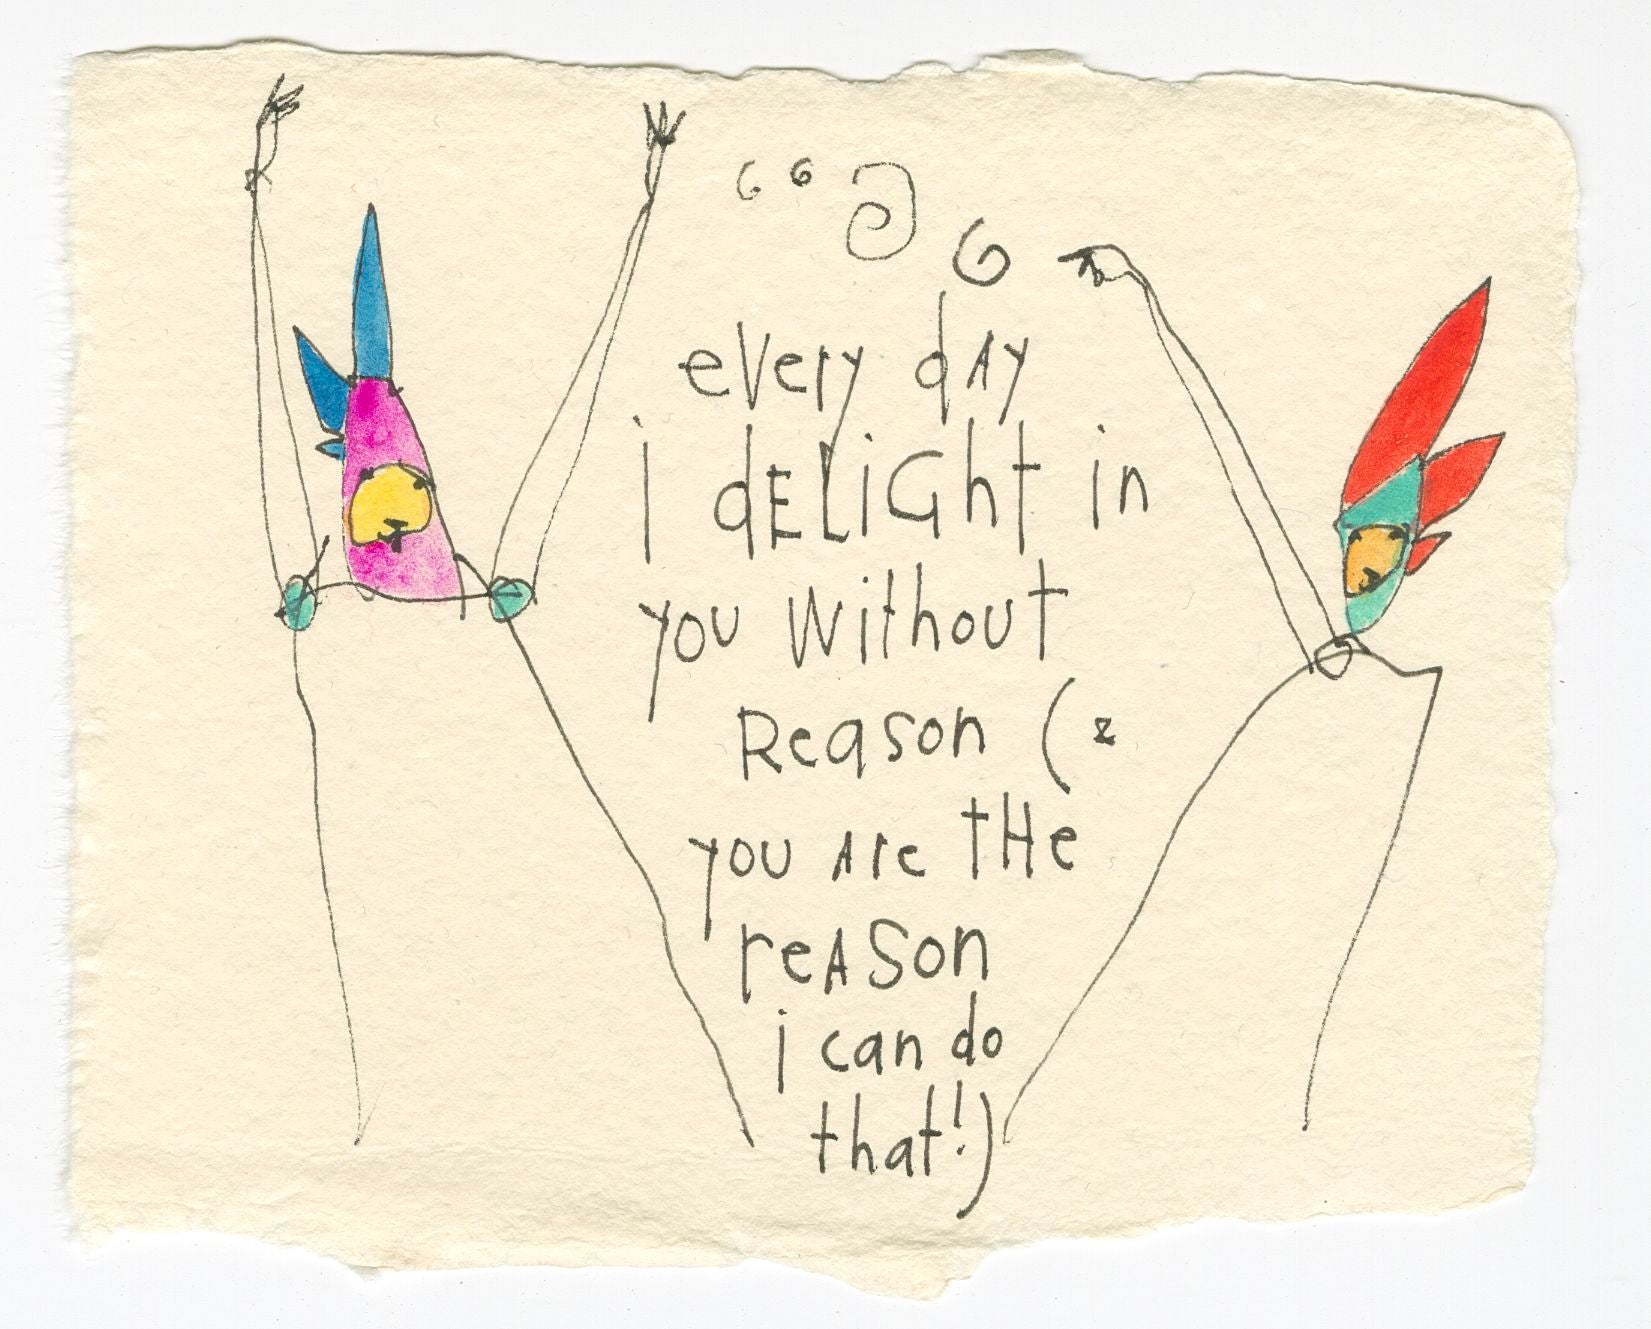 every day
i dELiGht in
you without
Reason (&
you Are tHe
reASon
i can do
that!)